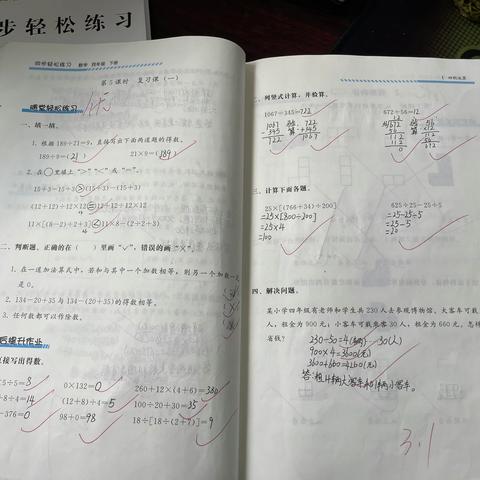 步轻松练习
同步轻松练习 数学 四年级 下册
第5课时 复习课（一）
课堂轻松练习
一、填一填。
1. 根据189÷21=9，直接写出下面两道题的得数。
189÷9=(21) 21×9=(189)
2. 在○里填上“>”“<”或“=”。
15÷3-15÷3>(15÷3)-(15÷3)
(12+12)÷12×12=12+12÷12×12
11×[(8-2)÷2+3]<11×8-(2÷2+3)
二、判断题。正确的在（ ）里画“√”，错误的画“×”。
1. 在一道加法算式中，若和与其中一个加数相等，则另一个加数一定
是0。
2. 134-20+35与134-(20+35)的得数相等。
3. 任何数都可以作除数。
后提升作业
直接写出得数。
0×132=0
260+12×(4+6)=380
÷8÷4=14
(12+8)÷4=5
100÷20+30=35
-376=0
98+0=98
18÷[18÷(2+7)]=9
1 四则运算
二、列竖式计算，并验算。
1067-345=722
672÷56=12
三、计算下面各题。
25×[(766+34)÷200]
=25×[800÷200]
=25×4
=100
625÷25-25÷5
=25-25÷5
=25-5
=20
四、解决问题。
某小学四年级有老师和学生共230人去参观博物馆。大客车可载
人，租金为900元；小客车可载乘客30人，租金为660元。怎样
省钱？
230÷50=4(辆)……30(人)
900×4=3600(元)
3600+660=4260(元)
答:租4辆大客车和1辆小客车。
3.1